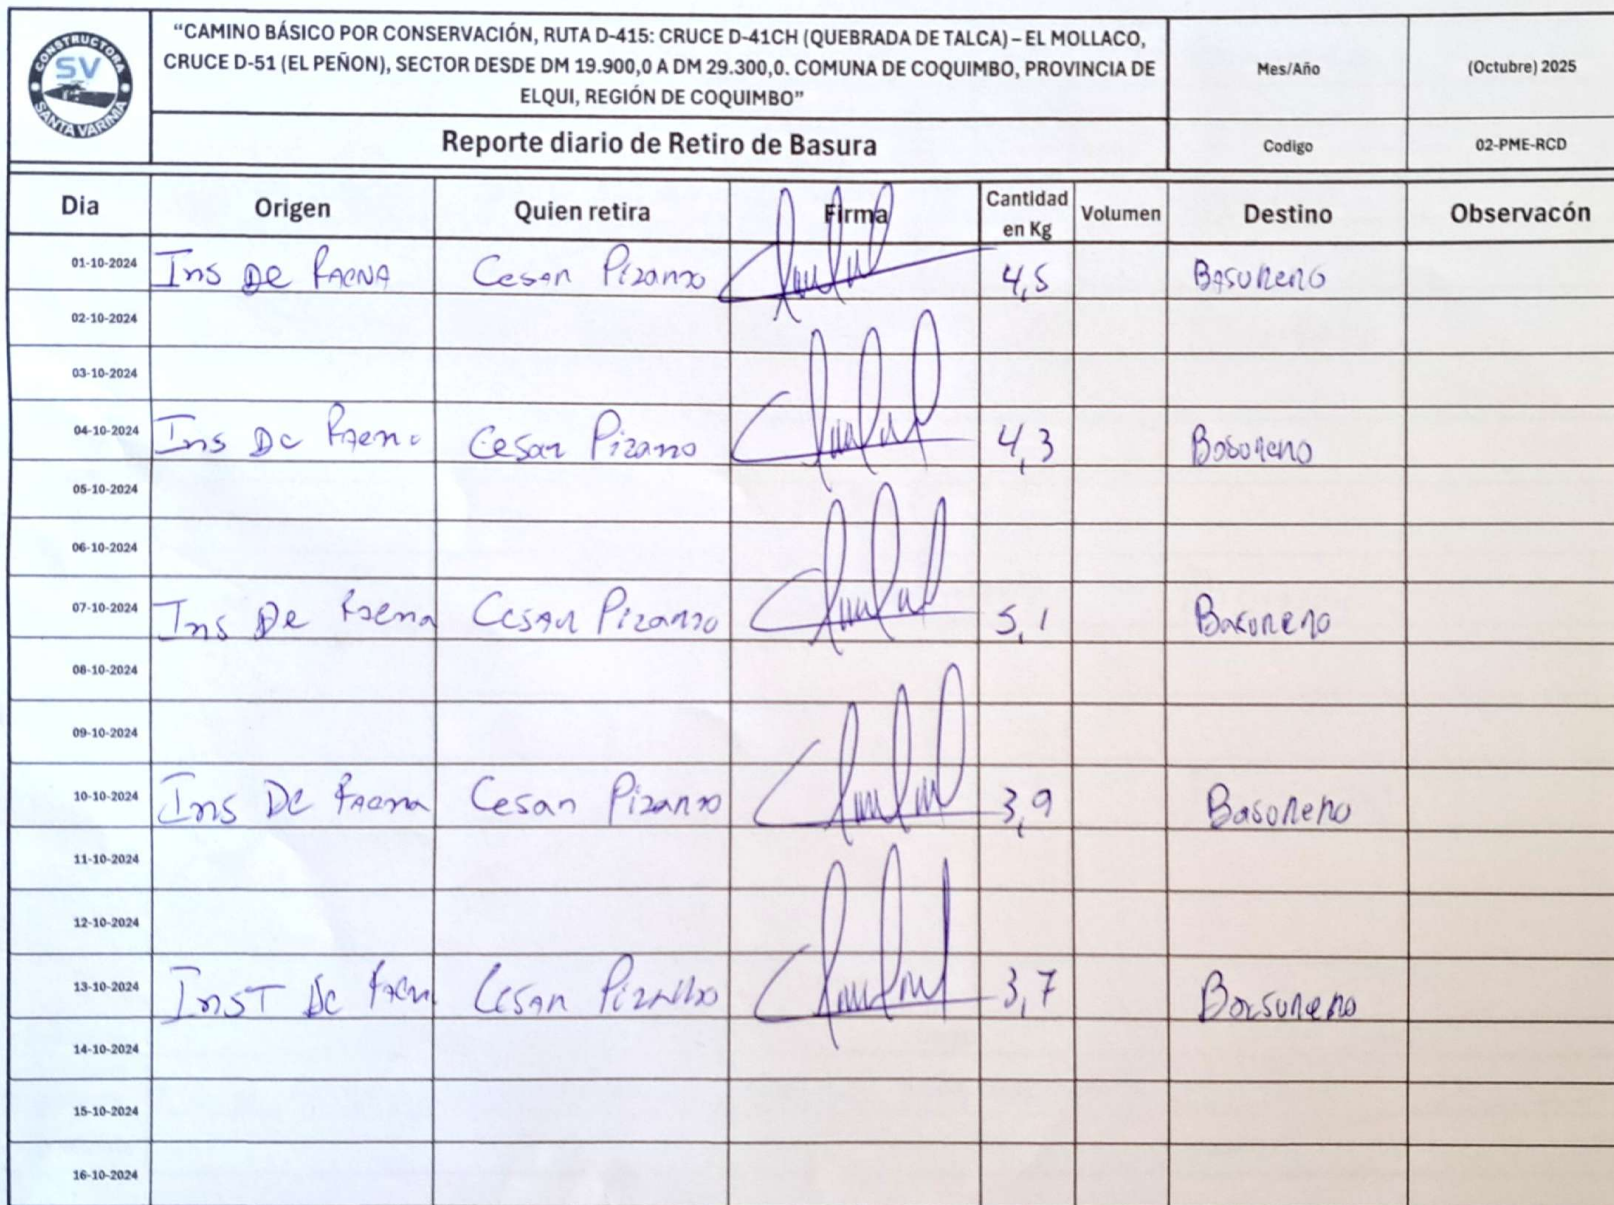 CONSTRUCTORA
SV
SANTA VARINIA
“CAMINO BÁSICO POR CONSERVACIÓN, RUTA D-415: CRUCE D-41CH (QUEBRADA DE TALCA) – EL MOLLACO,
CRUCE D-51 (EL PEÑON), SECTOR DESDE DM 19.900,0 A DM 29.300,0. COMUNA DE COQUIMBO, PROVINCIA DE
ELQUI, REGIÓN DE COQUIMBO”
Mes/Año (Octubre) 2025
Reporte diario de Retiro de Basura Codigo 02-PME-RCD
Dia Origen Quien retira Firma Cantidad en Kg Volumen Destino Observacón
01-10-2024 Ins De Faena Cesar Pizarro 4,5 Basurero
02-10-2024
03-10-2024
04-10-2024 Ins De Faena Cesar Pizarro 4,3 Basurero
05-10-2024
06-10-2024
07-10-2024 Ins De Faena Cesar Pizarro 5,1 Basurero
08-10-2024
09-10-2024
10-10-2024 Ins De Faena Cesar Pizarro 3,9 Basurero
11-10-2024
12-10-2024
13-10-2024 Inst De Faen Cesar Pizarro 3,7 Basurero
14-10-2024
15-10-2024
16-10-2024